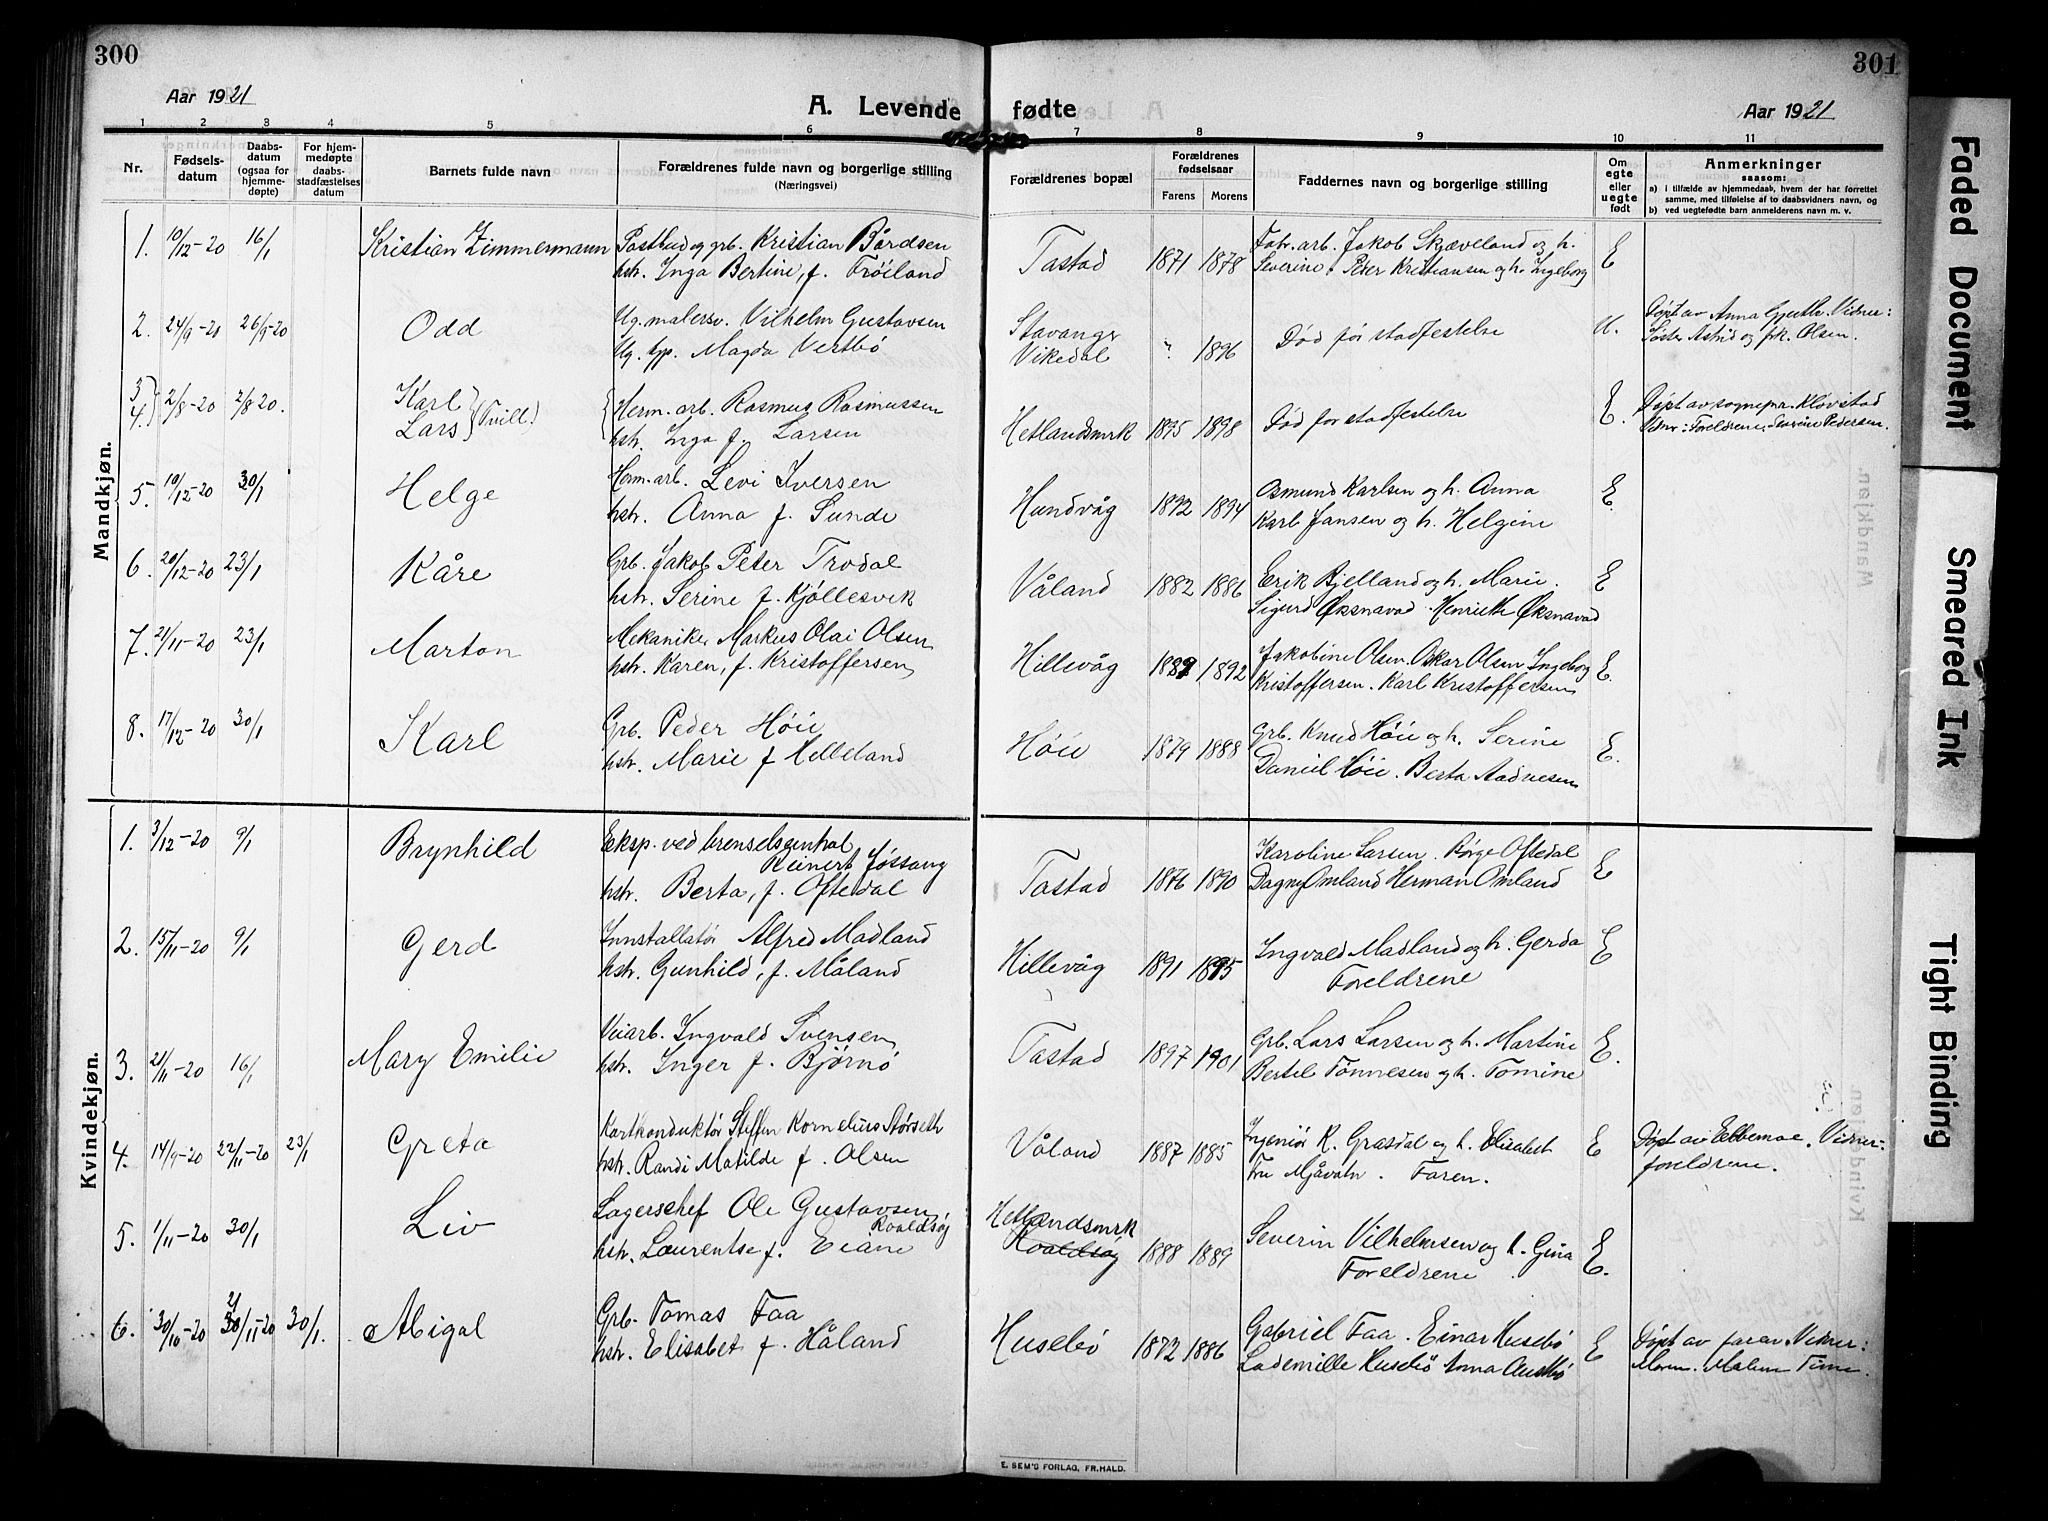 300
301
Aar 1921
A. Levende fødte
Aar 1921
1 2 3 4 5 6 7 8 9 10 11
Nr.
Fødsels-
datum
Daabs-
datum
(ogsaa for
hjemme-
døpte)
For hjem-
medøpte
daabs-
stadfæstelses
datum
Barnets fulde navn
Forældrenes fulde navn og borgerlige stilling
(Næringsvei)
Forældrenes bopæl
Forældrenes
fødselsaar
Farens Morens
Faddernes navn og borgerlige stilling
Om
egte
eller
uegte
født
Anmerkninger
saasom:
a) i tilfælde av hjemmedaab, hvem der har forrettet
samme, med tilføielse af to daabsvidners navn, og
b) ved uegtefødte barn anmelderens navn m. v.
Mandkjøn.
1. 10/12-20 16/1 Kristian Zimmermann Postbud og grb. Kristian Bårdsen Tastad 1871 1878 Fabr.arb. Jakob Skjæveland og h. E
hstr. Inga Bertine, f. Frøiland Severine. Peter Kristiansen og h. Ingeborg
2. 24/9-20 26/9-20 Odd Ug. malersv. Vilhelm Gustavsen Stavanger " Død før stadfestelse U. Døpt av Anna Gjuth. Vidner:
Ug. tjp. Magda Vestbø Vikedal 1896 Søster Astrid og frk. Olsen.
3 4 } 2/8-20 2/8 20. Karl Lars (Tvill.) Herm. arb. Rasmus Rasmussen Hetlandsmrk 1895 1898 Død før stadfestelse E. Døpt av sognepr. Kløvstad
hstr. Inga f. Larsen Vidner: Foreldrene, Severine Pedersen.
5. 10/12-20 30/1 Helge Herm. arb. Levi Iversen Hundvåg 1892 1894 Osmund Karlsen og h. Anna E.
hstr. Anna f. Sunde Karl Jansen og h. Helgine
6. 20/12-20 23/1 Kåre Grb. Jakob Peter Trodal Våland 1882 1886 Erik Bjelland og h. Marie. E
hstr. Serine f. Kjøllesvik Sigurd Øksnavad. Henriette Øksnavad
7. 21/11-20 23/1 Marton Mekaniker Markus Olai Olsen Hillevåg 1889 1892 Jakobine Olsen. Oskar Olsen Ingeborg E.
hstr. Karen, f. Kristoffersen Kristoffersen. Karl Kristoffersen
8. 17/12-20 30/1 Karl Grb. Peder Høie Høie 1879 1888 Grb. Knud Høie og h. Serine E.
hstr. Marie f Helleland Daniel Høie. Berta Aadnesen
Kvindekjøn.
1. 3/12-20 9/1 Brynhild Eksp. ved brenselscentral Reinert Jøssang Tastad 1876 1890 Karoline Larsen. Børge Oftedal E
hstr. Berta, f. Oftedal Dagny Omland Herman Omland
2. 15/11-20 9/1 Gerd Innstallatør Alfred Madland Hillevåg 1891 1895 Ingvald Madland og h. Gerda E
hstr. Gunhild, f. Måland Foreldrene
3. 21/11-20 16/1 Mary Emilie Veiarb. Ingvald Svensen Tastad 1897 1901 Grb. Lars Larsen og h. Martine E.
hstr. Inger f. Bjørnø Bertel Tønnesen og h. Tomine
4. 14/9-20 22/11-20 23/1 Greta Kartkonduktør Steffen Kornelius Størseth Våland 1887 1885 Ingeniør K. Grasdal og h. Elisabet E Døpt av Vidner-
hstr. Randi Matilde f. Olsen Fru Mjåvatn. Faren. foreldrene.
5. 1/11-20 30/1 Liv Lagerschef Ole Gustavsen Roaldsøy Hetlandsmrk 1888 1889 Severin Vilhelmsen og h. Gina E.
hstr. Laurentse f. Eiane Roaldsøy Foreldrene
6. 30/10-20 21/11-20 30/1. Abigal Grb. Tomas Faa Husebø 1872 1886 Gabriel Faa. Einar Husebø E Døpt av faren. Vidner:
hstr. Elisabet f. Håland Lademille Husebø Anna Austbø Moren. Malene Time.
E. SEM'S FORLAG, FR.HALD.
Faded Document
Smeared Ink
Tight Binding